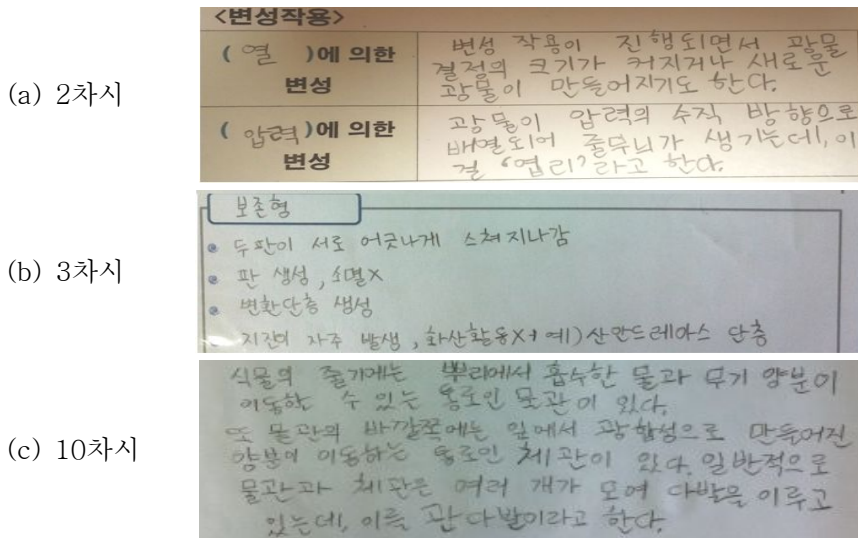 <변성작용>
( 열 )에 의한
변성
변성 작용이 진행되면서 광물
결정의 크기가 커지거나 새로운
광물이 만들어지기도 한다.
( 압력 )에 의한
변성
광물이 압력의 수직 방향으로
배열되어 줄무늬가 생기는데, 이
걸 '엽리'라고 한다.
(a) 2차시
보존형
두판이 서로 어긋나게 스쳐지나감
판 생성, 소멸X
변환단층 생성
지진이 자주 발생, 화산활동X 예) 산안드레아스 단층
(b) 3차시
식물의 줄기에는 뿌리에서 흡수한 물과 무기 양분이
이동할 수 있는 통로인 물관이 있다.
또 물관의 바깥쪽에는 잎에서 광합성으로 만들어진
양분이 이동하는 통로인 체관이 있다. 일반적으로
물관과 체관은 여러 개가 모여 다발을 이루고
있는데, 이를 관다발이라고 한다.
(c) 10차시